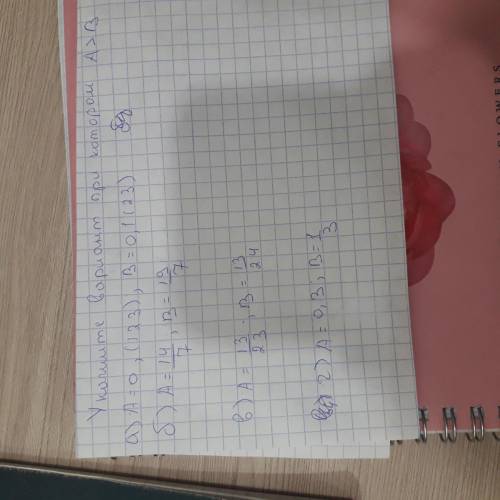 Укажите вариант при котором A > B
а) A = 0,(123), B = 0,1(23)
б) A = 14/7, B = 13/7
в) A = 13/23, B = 13/24
г) A = 0,3, B = 1/3
FLOWERS